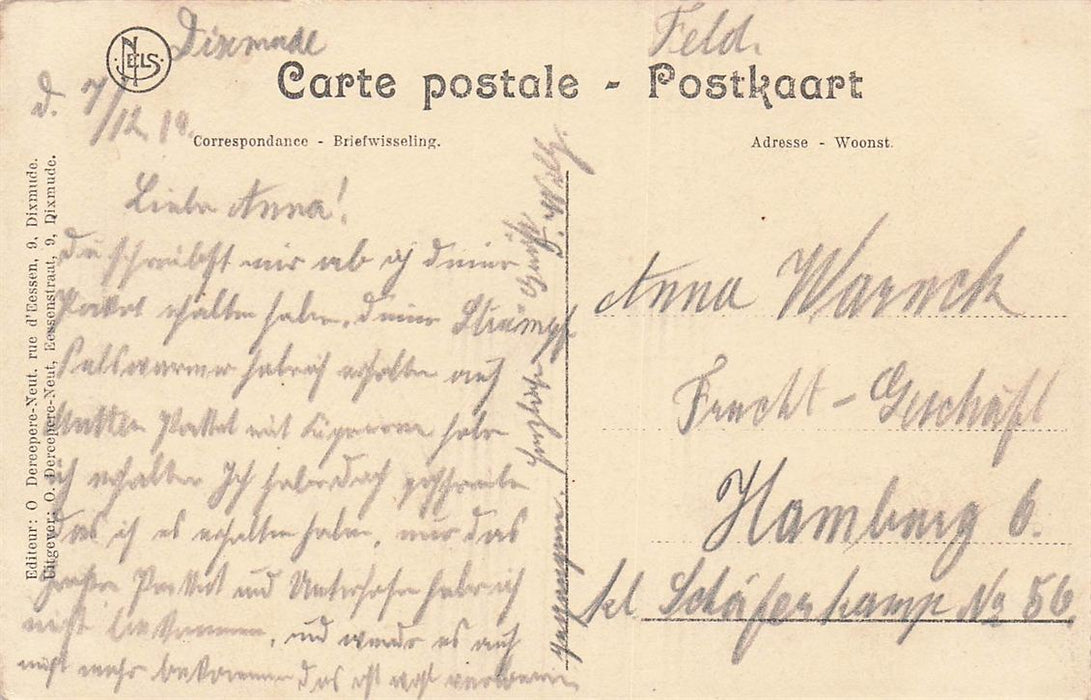 NELS
Dixmude
Feld.
Carte postale - Postkaart
d. 7/12 19.
Correspondance - Briefwisseling.
Adresse - Woonst.
Editeur: O Dereepere-Neut. rue d'Eessen, 9, Dixmude.
Uitgever: O. Dereepere-Neut, Eessenstraat, 9, Dixmude.
Liebe Anna!
Du schreibst mir ob ich deine
Paket erhalten habe, deine Strümpf
habe ich erhalten auch
Paket mit habe
ich erhalten Ich habe doch geschrieben
das ich es erhalten habe, nur das
Paket und Unterhose habe ich
nicht bekommen, und werde es auch
nicht mehr bekommen das ist
gegangen.
Gruß
Anna Warnck
Frucht-Geschäft
Hamburg 6.
kl. Schäferkamp No 56